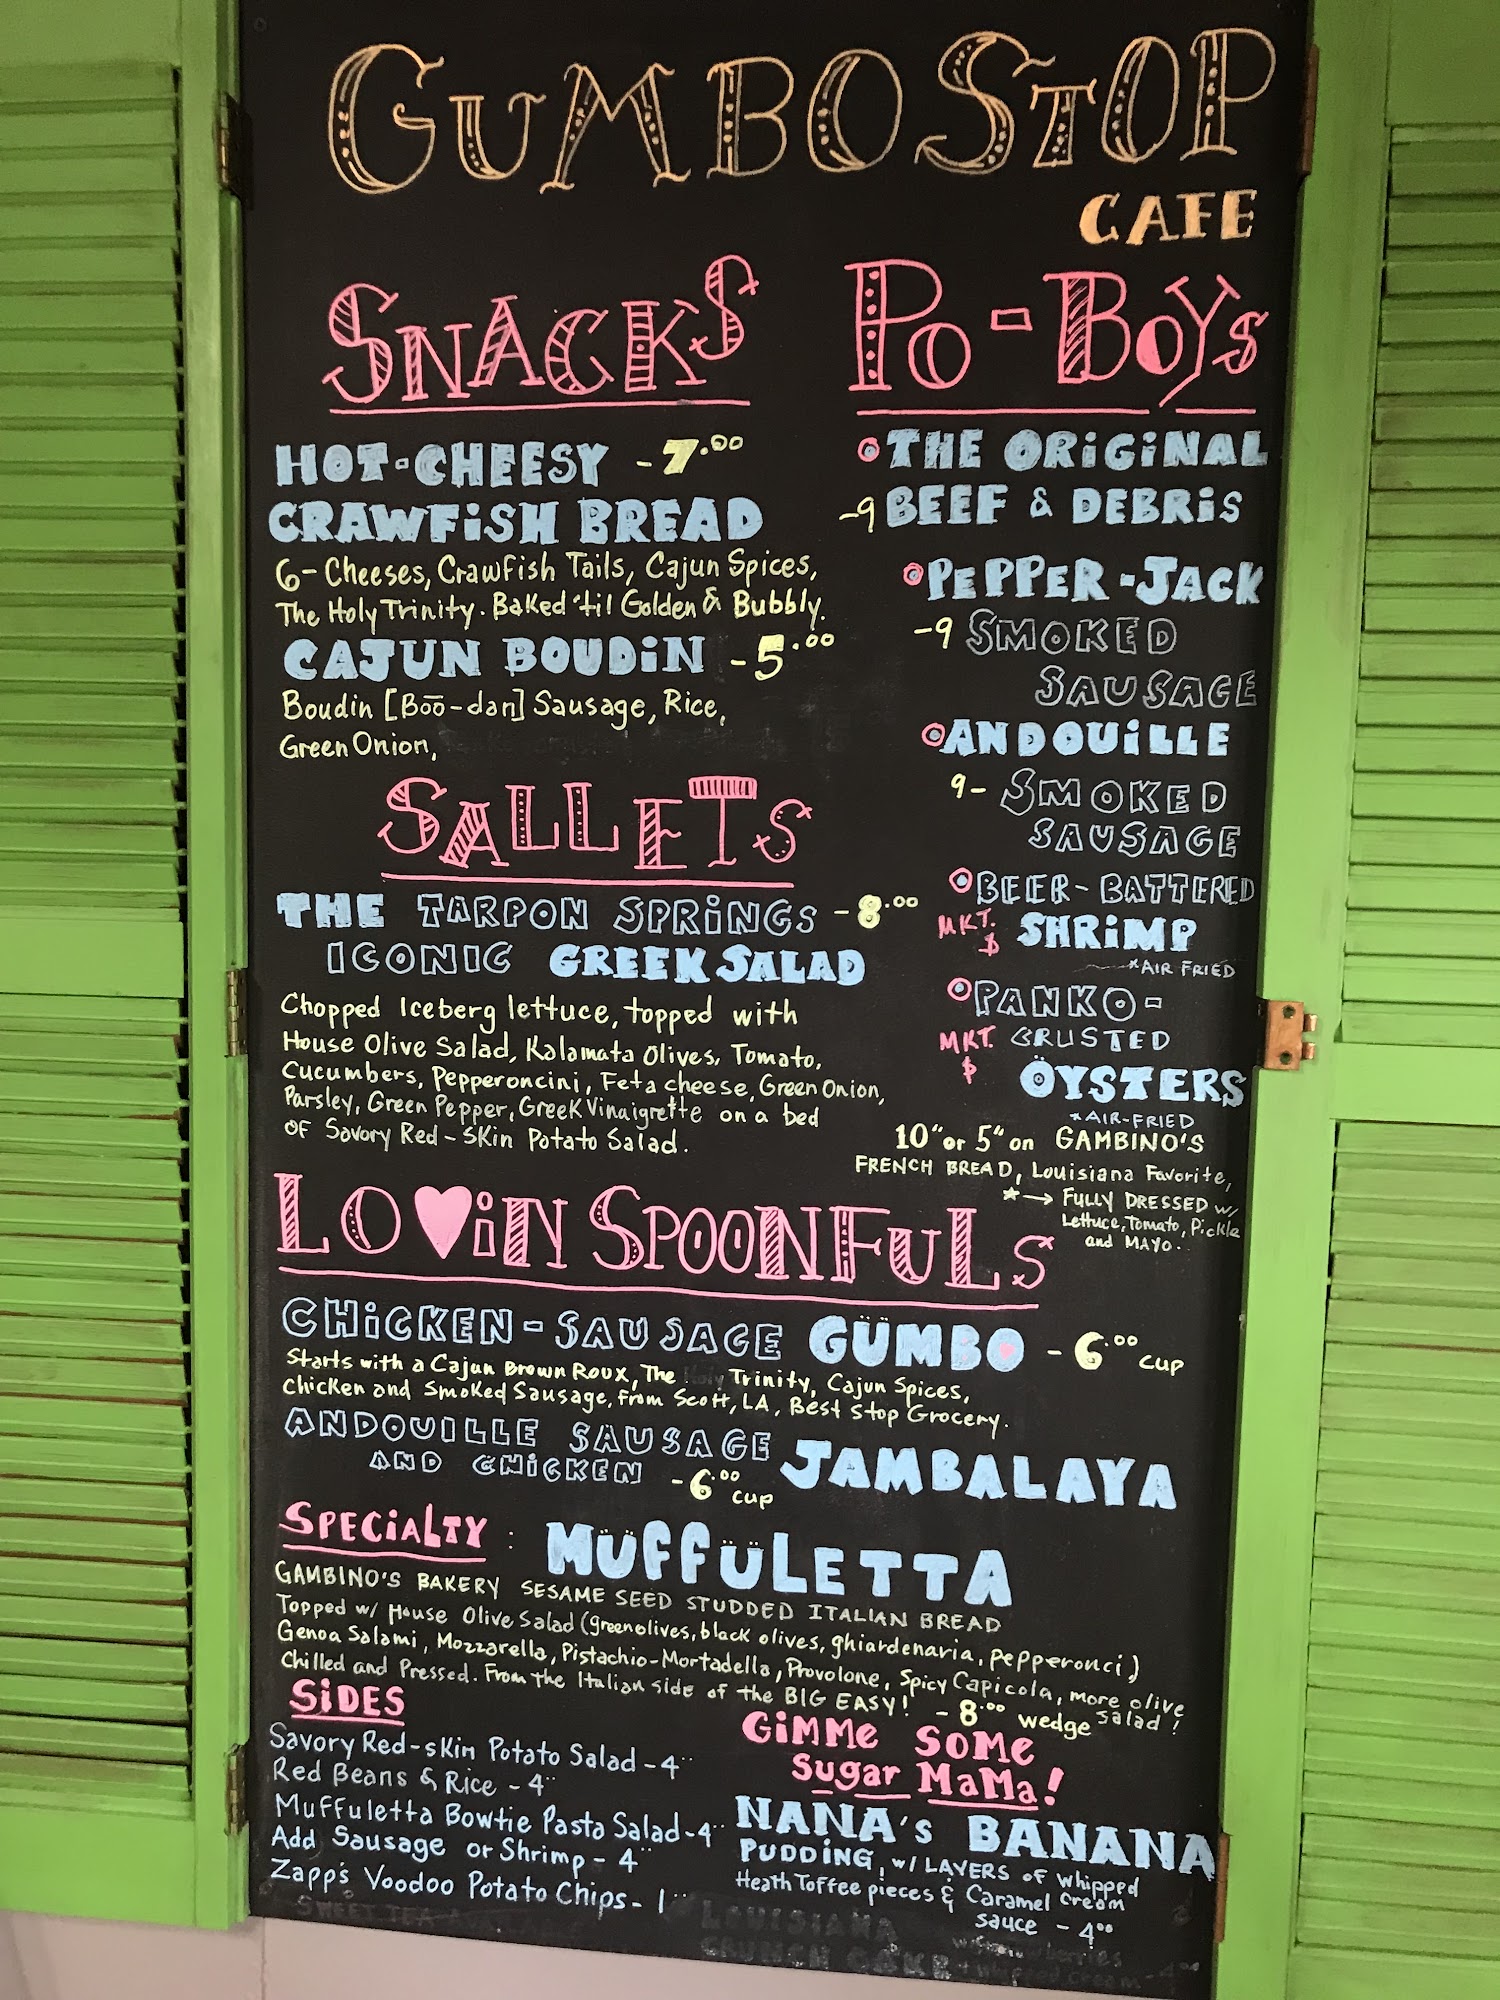 GUMBO STOP
CAFE
SNACKS
HOT-CHEESY -7.00
CRAWFISH BREAD
6-Cheeses, Crawfish Tails, Cajun Spices,
The Holy Trinity. Baked 'til Golden & Bubbly.
CAJUN BOUDIN -5.00
Boudin [Boo-dan] Sausage, Rice,
Green Onion,
SALLETS
THE TARPON SPRINGS -8.00
ICONIC GREEK SALAD
Chopped Iceberg lettuce, topped with
House Olive Salad, Kalamata Olives, Tomato,
Cucumbers, Pepperoncini, Feta cheese, Green Onion,
Parsley, Green Pepper, Greek Vinaigrette on a bed
of Savory Red-Skin Potato Salad.
PO-BOYS
THE ORIGINAL
-9 BEEF & DEBRIS
PEPPER-JACK
-9 SMOKED
SAUSAGE
ANDOUILLE
9- SMOKED
SAUSAGE
BEER-BATTERED
MKT. $ SHRIMP
*AIR FRIED
PANKO-
MKT. $ CRUSTED
ÖYSTERS
*AIR-FRIED
10" or 5" on GAMBINO'S
FRENCH BREAD, Louisiana Favorite,
*→ FULLY DRESSED w/
Lettuce, Tomato, Pickle
and MAYO.
LO♥iN SPOONFULS
CHICKEN-SAUSAGE GÜMBO -6.00 cup
Starts with a Cajun Brown Roux, The Holy Trinity, Cajun Spices,
Chicken and Smoked Sausage, from Scott, LA, Best Stop Grocery.
ANDOUILLE SAUSAGE
AND CHICKEN -6.00 cup JAMBALAYA
SPECIALTY: MÜFFÜLETTA
GAMBINO'S BAKERY SESAME SEED STUDDED ITALIAN BREAD
Topped w/ House Olive Salad (green olives, black olives, ghiardenaria, pepperonci)
Genoa Salami, Mozzarella, Pistachio-Mortadella, Provolone, Spicy Capicola, more olive salad!
Chilled and Pressed. From the Italian side of the BIG EASY! -8.00 wedge
SIDES
Savory Red-skin Potato Salad -4
Red Beans & Rice -4
Muffuletta Bowtie Pasta Salad -4
Add Sausage or Shrimp -4
Zapp's Voodoo Potato Chips -1
GIMME SOME
Sugar MaMa!
NANA'S BANANA
PUDDING, w/ LAYERS OF whipped cream
Heath Toffee pieces & Caramel
sauce -4.00
LOUISIANA
CRUNCH CAKE